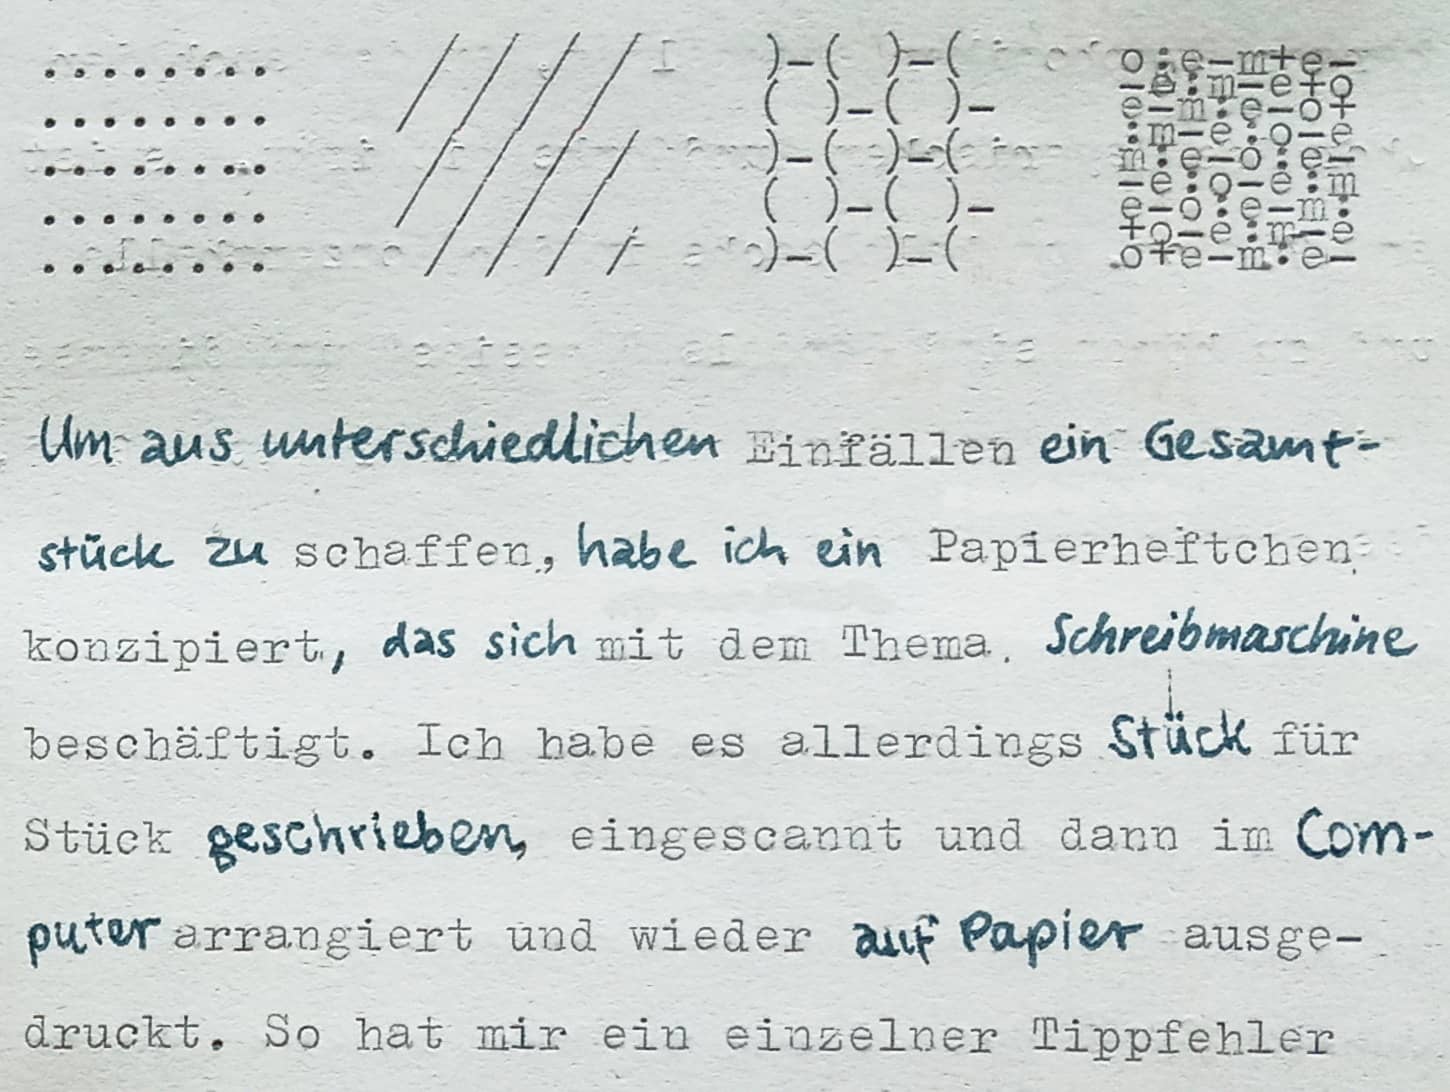 Um aus unterschiedlichen Einfällen ein Gesamt-
stück zu schaffen, habe ich ein Papierheftchen
konzipiert, das sich mit dem Thema Schreibmaschine
beschäftigt. Ich habe es allerdings Stück für
Stück geschrieben, eingescannt und dann im Com-
puter arrangiert und wieder auf Papier ausge-
druckt. So hat mir ein einzelner Tippfehler